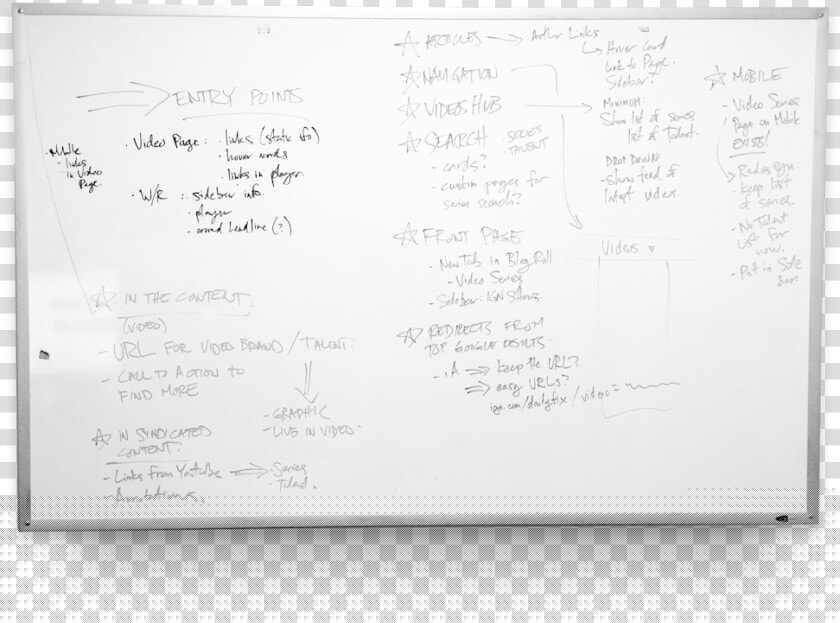 ENTRY POINTS
· Mobile
- links
in Video
Page.
· Video Page: · links (static ifo)
· hover words
· links in player.
· W/R : · sidebar info.
· player
· around headline (?)
☆ IN THE CONTENT:
(VIDEO)
- URL FOR VIDEO BRAND / TALENT.
- CALL TO ACTION TO
FIND MORE
- GRAPHIC
- LIVE IN VIDEO.
☆ IN SYNDICATED
CONTENT:
- Links from YouTube → · Series
· Talent.
- Annotations..
☆ ARTICLES → Author Links
↳ Hover card
Link to Page.
Sidebar?
☆ NAVIGATION
☆ VIDEOS HUB →
MINIMUM:
Show list of series
list of Talent.
DROP DOWN:
- Show feed of
latest videos.
☆ SEARCH SERIES
TALENT
- cards?
- custom pages for
series search?
Videos
☆ FRONT PAGE
- New Tab in BlogRoll
- Video Series
- Sidebar: IGN Shows.
☆ REDIRECTS FROM
TOP GOOGLE RESULTS.
- iA ⇒ keep the URL?
⇒ easy URLs?
ign.com/dailyfix / video=
☆ MOBILE
- Video Series
Page on Mobile
EXISTS!
Redesign:
- keep list
of series.
- No Talent
list for
now.
- Put in Side
bar.